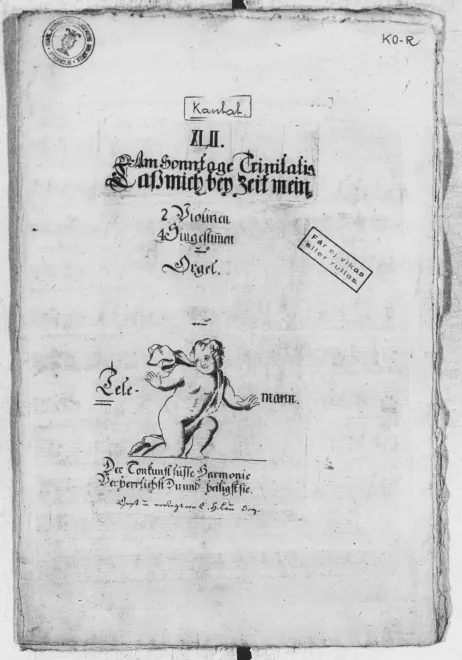 KO-R
Kantat.
XLII.
Am Sonntage Trinitatis
Laß mich bey Zeit mein
2 Violinen
4 Singestimen
und
Orgel.
von
Tele- mann.
Får ej vikas
eller rullas.
Der Tonkunst süsse Harmonie
Verherrlichst Du und heiligst sie.